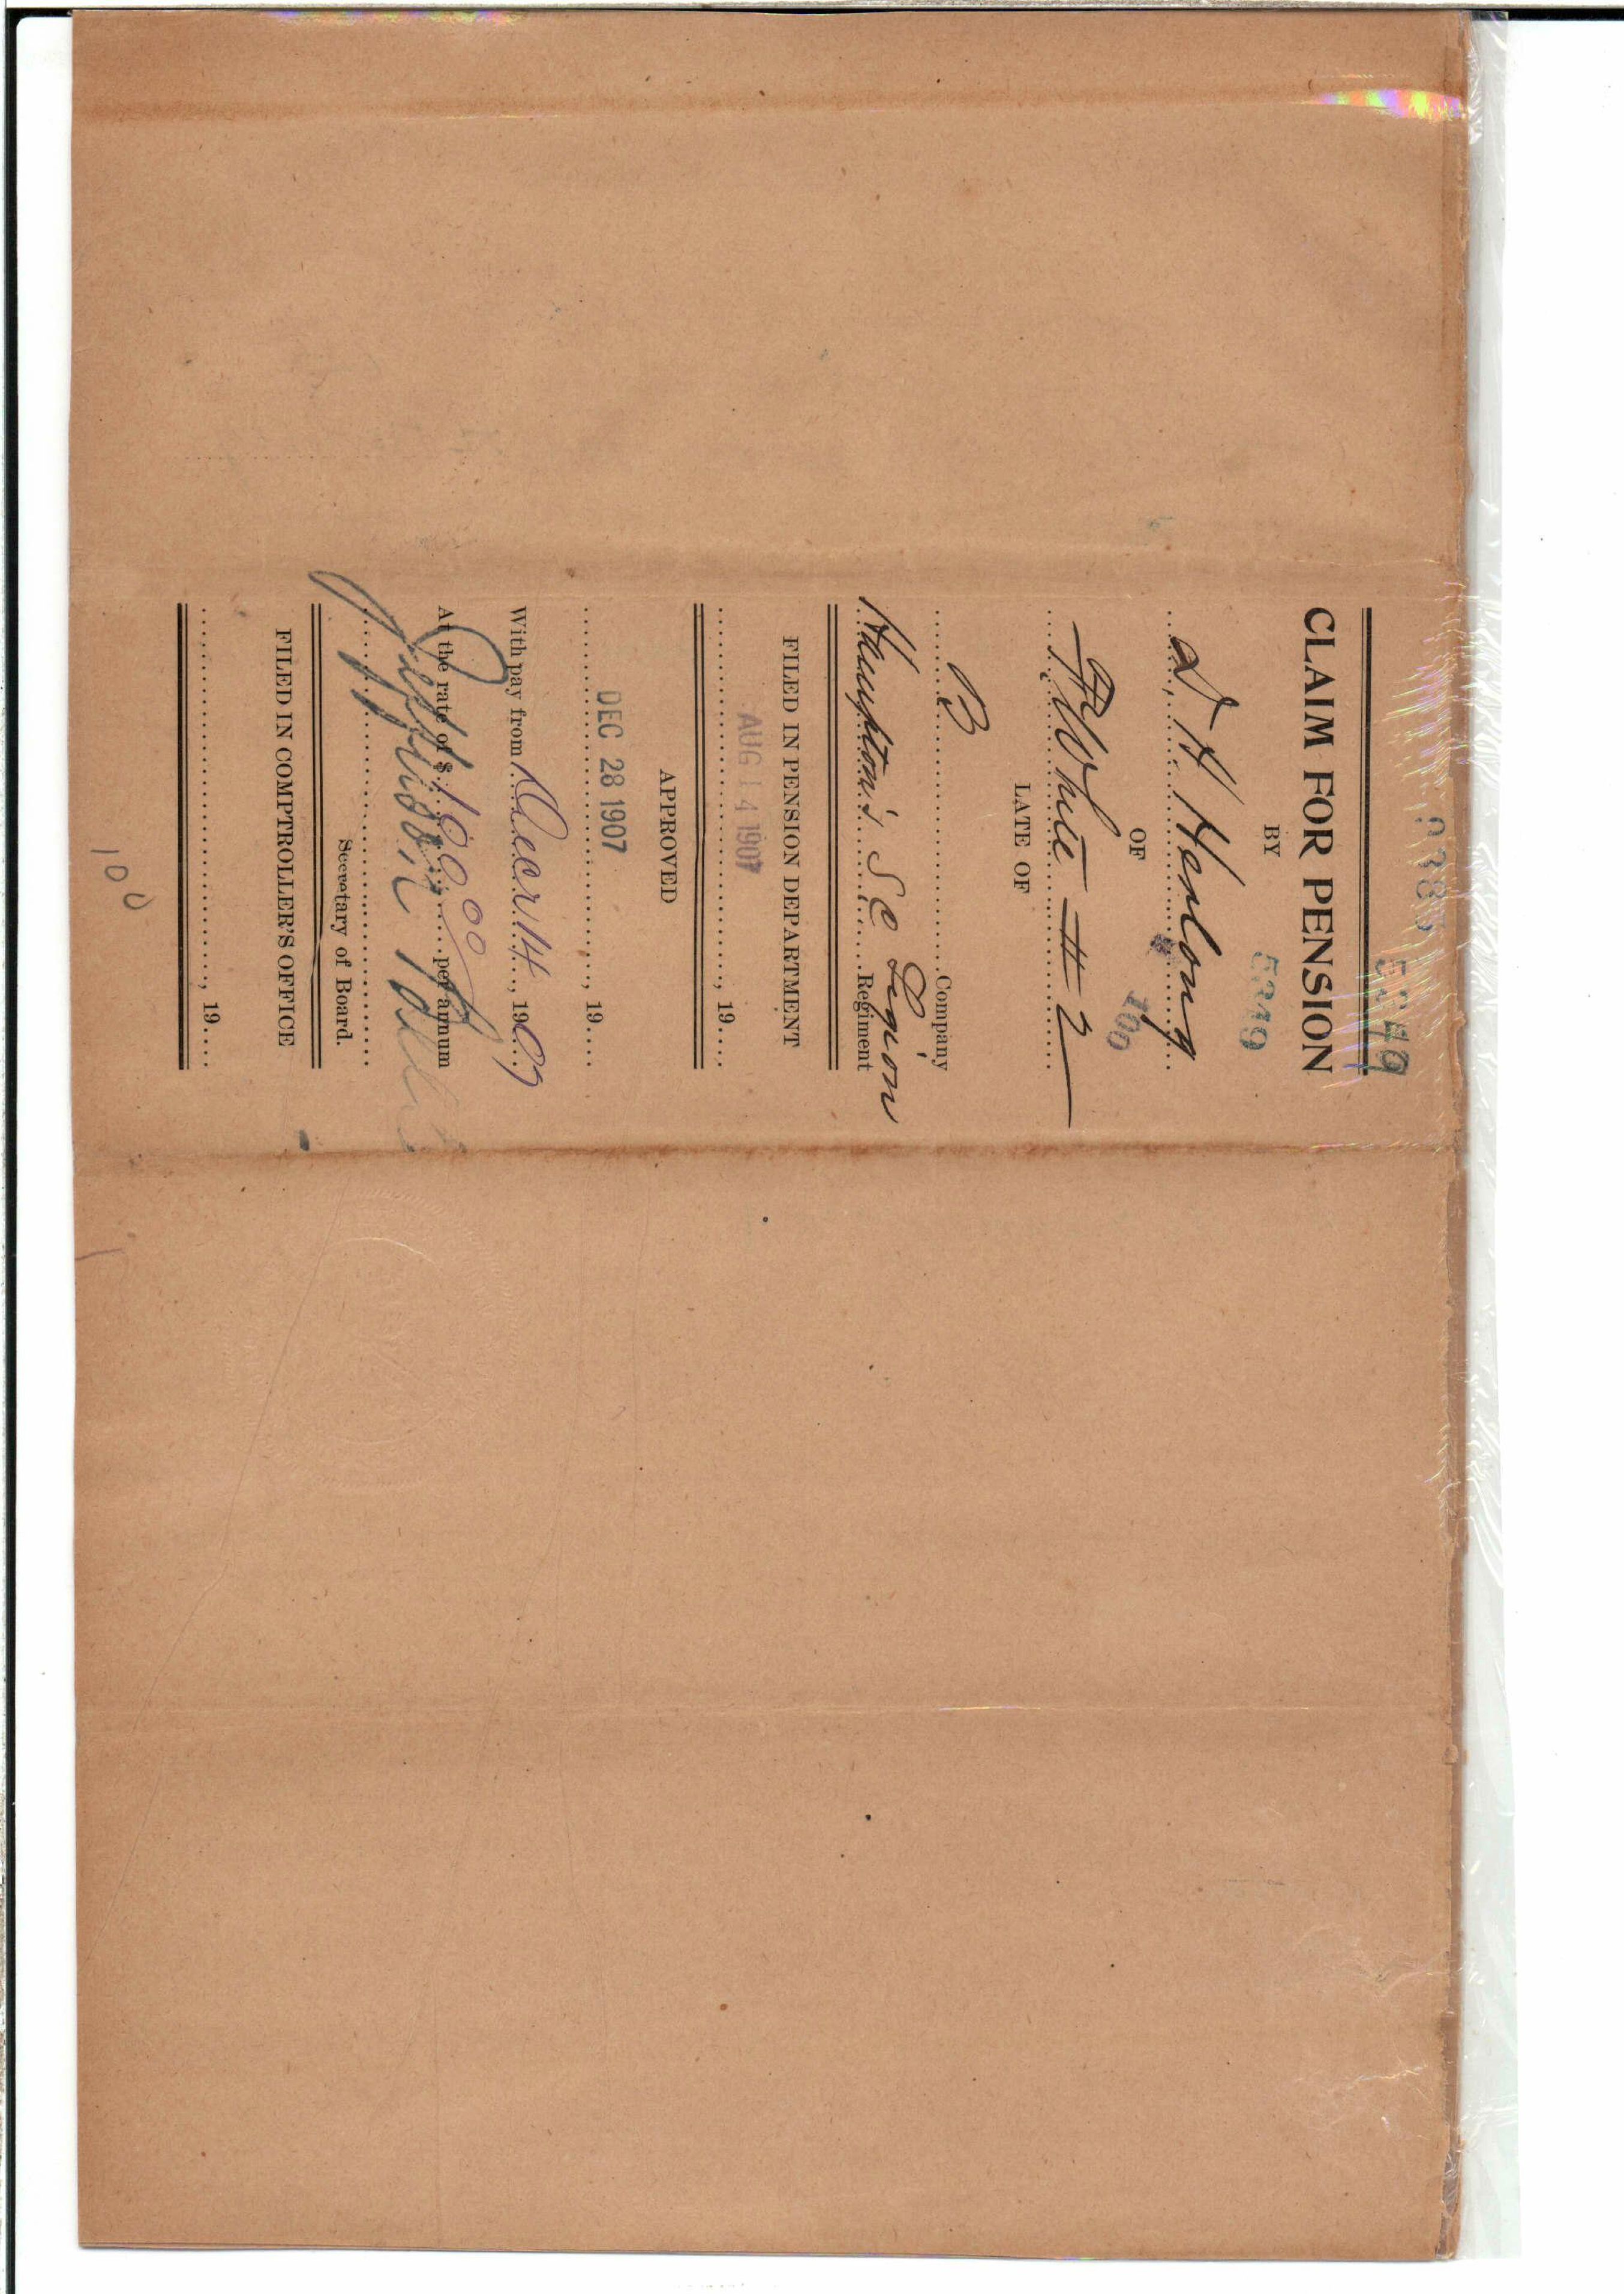 5349
CLAIM FOR PENSION
BY
5349
D H Henlong
OF
100
White # 2
LATE OF
B Company
Hampton's S C Legion Regiment
FILED IN PENSION DEPARTMENT
AUG 14 1907
, 19
APPROVED
DEC 28 1907
, 19
With pay from Decr 14, 1907
At the rate of $ 100 00 per annum
Jefferson
Secretary of Board.
FILED IN COMPTROLLER'S OFFICE
, 19
100